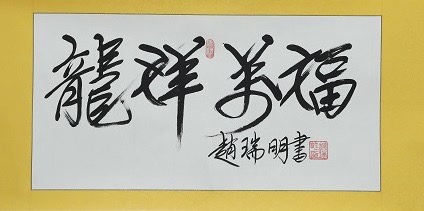 龍祥萬福
趙瑞明書